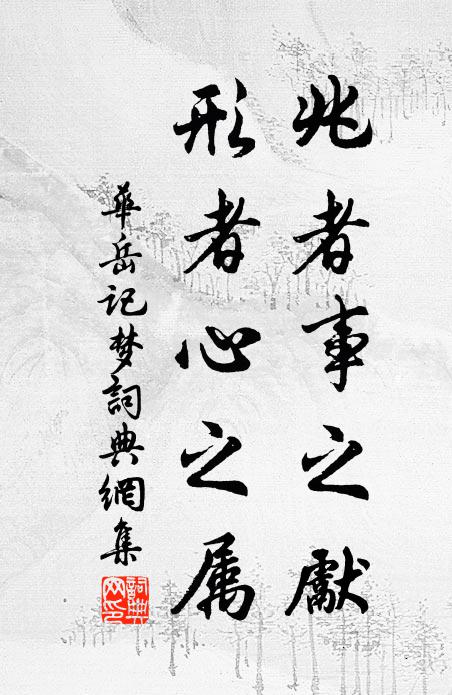 兆者事之獻
形者心之属
華岳记梦詞典網集
詞典
网印